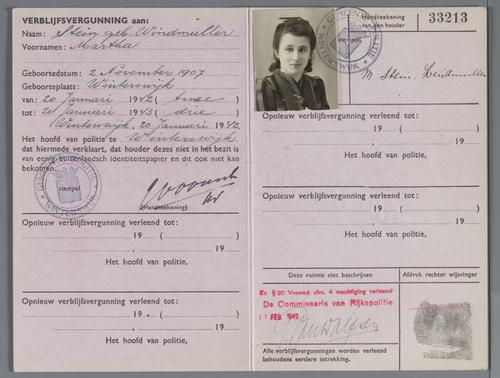 VERBLIJFSVERGUNNING aan:
Naam: Stein geb. Windmuller
Voornamen: Martha
Geboortedatum: 2 November 1907
Geboorteplaats: Winterswijk
van: 20 Januari 1942 (twee)
tot: 20 Januari 1943 (drie)
Winterswijk, 20 Januari 1942
Het hoofd van politie te Winterswijk
dat hiermede verklaart, dat houder dezes niet in het bezit is
van eenig buitenlandsch identiteitspapier en dit ook niet kan
bekomen.
stempel
(Handteekening)
Opnieuw verblijfsvergunning verleend tot:
19 ( )
, 19
Het hoofd van politie,
Opnieuw verblijfsvergunning verleend tot:
19 ( )
, 19
Het hoofd van politie,
Handteekening
van houder
33213
stempel
WINTERSWIJK
M. Stein
Opnieuw verblijfsvergunning verleend tot:
19 ( )
, 19
Het hoofd van politie,
Opnieuw verblijfsvergunning verleend tot:
19 ( )
, 19
Het hoofd van politie,
Deze ruimte niet beschrijven
Afdruk rechter wijsvinger
Ex § 20 Vreemd. circ. 4 machtiging verleend
De Commissaris van Rijkspolitie
11 FEB 1942
Alle verblijfsvergunningen worden verleend
behoudens eerdere intrekking.